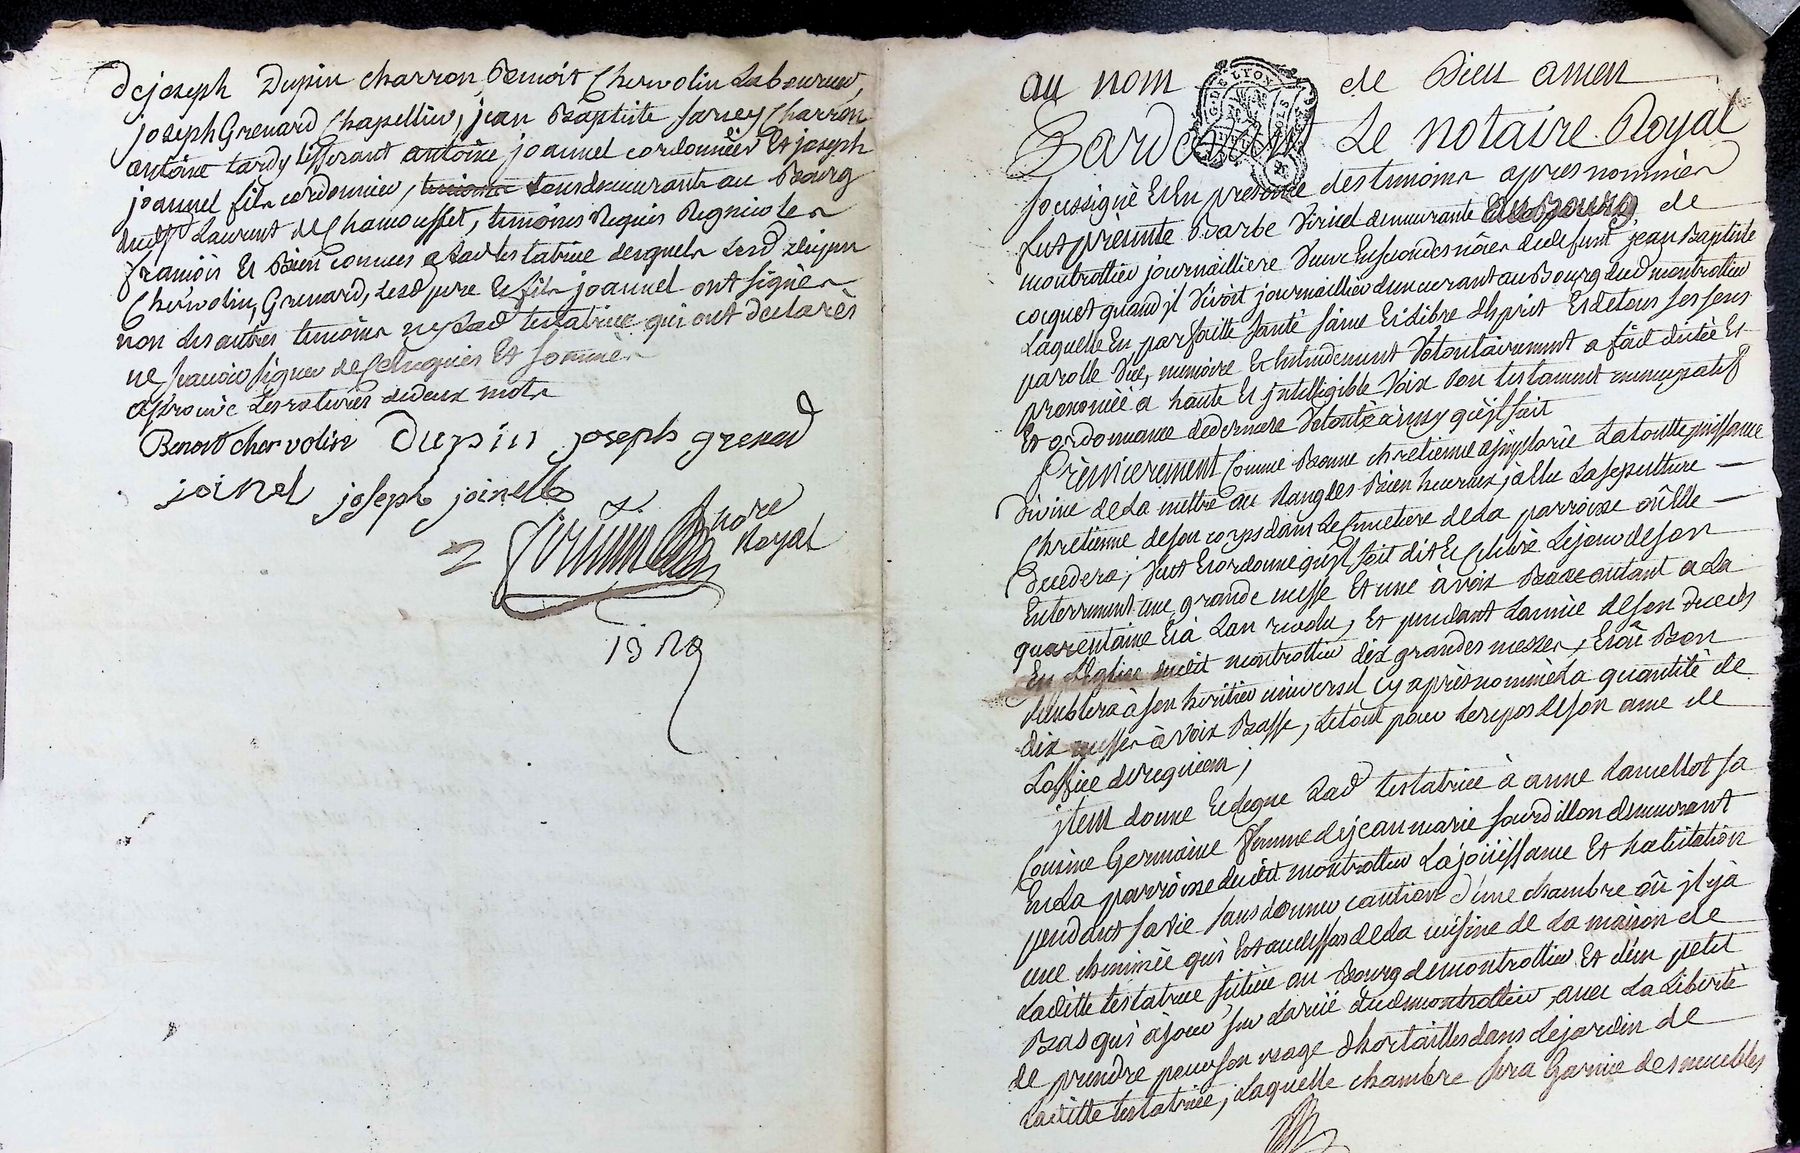 de joseph Dupin charron, Benoit Chervolin Laboureur,
joseph Grenard Chapellier, jean Baptiste farney Charron
antoine tardy tisserant antoine joannel cordonnier Et joseph
joannel fils cordonnier, temoins tous demeurants au Bourg
dudt Laurent de Chamousset, temoins Requis Regnicoles
francois Et Bien connus a Lad testatrice desquels Lesd Dupin
Chervolin, Grenard, Lesd pere Et fils joannel ont signés
non Les autres temoins ny Lad testatrice qui ont declarés
ne scavoir signer de ce Enquis Et sommés
approuvé Les ratures de deux mots
Benoit chervolin Dupin joseph grenard
joinel joseph joinell
nore
Royal
au nom de Dieu amen
G. DE LYON
SOLS
Pardevant Le notaire Royal
soussigné Et En presence des temoins apres nommés
fut presente Barbe Viricel demeurante de
montrottier journaillere Veuve En secondes nôces de defunt jean Baptiste
cocquet quand jl Vivoit journaillier demeurant au Bourg dud montrottier
Laquelle En parfaitte santé saine Et Libre d'Esprit Et de tous ses sens
parolle Vüe, memoire Et Entendement Volontairement a fait dictée Et
prononcée a haute Et jntelligible Voix son testament nuncupatif
Et ordonnance de derniere Volonté ainsy qu'jl suit
Premierement Comme Bonne chretienne a jmplorée La toutte puissance
Divine de La mettre au Rang des Bien heureux, jl a Elu La sepulture
Chretienne de son corps dans Le Cimetiere de La parroisse où Elle
Decedera, Veut Et ordonne qu'jl soit dit Et Celebré Le jour de son
Enterrement une grande messe Et une à voix Basse autant a La
quarentaine Et à Lan revolu, Et pendant L'année de son Deceds
En L'Eglise dudit montrottier dix grandes messes, Et où Bon
semblera à son heritier universel Cy après nommé La quantité de
dix messes à voix Basse, Le tout pour Le repos de son ame de
L'office de requiem;
jtem donne Et Legue Lad testatrice à anne Lamellot sa
Cousine Germaine femme de jean marie sourdillon demeurant
En La parroisse dudit montrottier La joüissance Et habitation
pendant sa vie sans donner caution d'une chambre où jl y à
une cheminée qui Est au dessus de La cuisine de La maison de
Laditte testatrice située au Bourg de montrottier Et d'un petit
Bas qui à jour sur La rüe dud montrottier, avec La Liberté
de prendre pour son usage d'hortailles dans Le jardin de
Laditte testatrice, Laquelle chambre sera Garnie des meubles